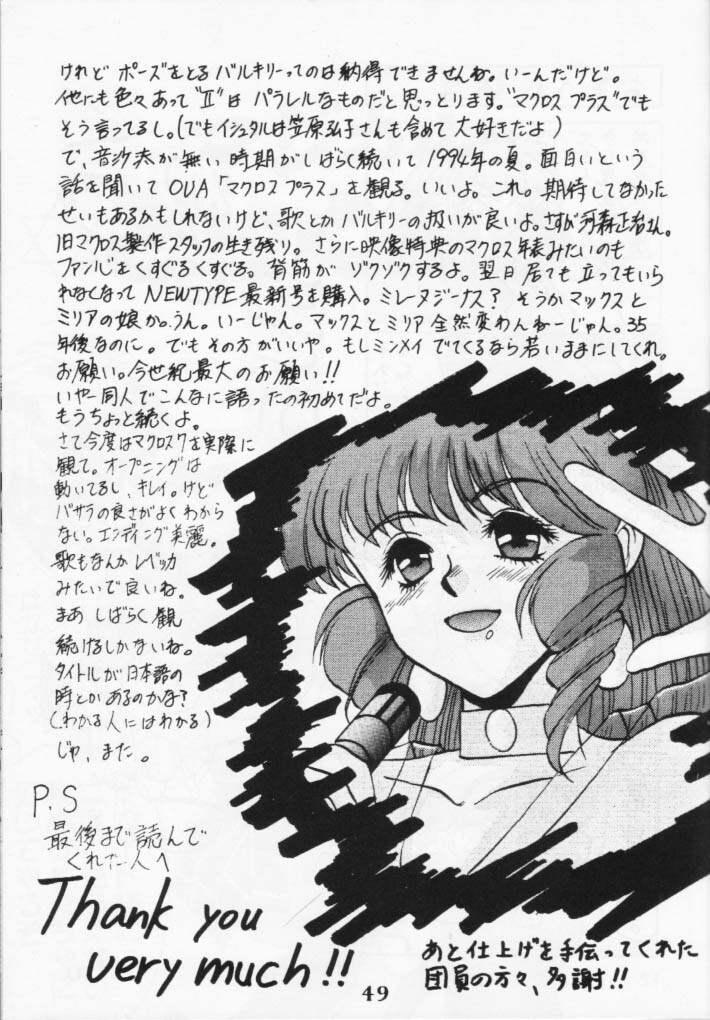 けれど ポーズをとる バルキリーってのは納得できませんね。いーんだけど。
他にも色々あって"Ⅱ"は パラレルなものだと思っとります。"マクロス プラス"でも
そう言ってるし。(でもイシュタルは笠原弘子さんも含めて 大好きだよ)
で、音沙汰が無い 時期がしばらく続いて 1994年の夏。面白いという
話を聞いて OVA「マクロス プラス」を観る。いいよ。これ。期待してなかった
せいもあるかもしれないけど、歌とか バルキリーの扱いが良いよ。さすが河森正治さん。
旧マクロス製作スタッフの生き残り。さらに映像特典のマクロス年表みたいのも
ファン心をくすぐるくすぐる。背筋が ゾクゾクするよ。翌日 居ても立ってもいら
れなくなって NEWTYPE 最新号を購入。ミレーヌジーナス? そうかマックスと
ミリアの娘か。うん。いーじゃん。マックスとミリア 全然変わんねーじゃん。35
年後なのに。でもその方がいいや。もしミンメイ でてくるなら若いままにしてくれ。
お願い。今世紀最大のお願い!!
いやー同人でこんなに語ったの初めてだよ。
もうちょっと続くよ。
さて今度はマクロス7を実際に
観て。オープニングは
動いてるし、キレイ。けど
バサラの良さがよくわから
ない。エンディング美麗。
歌もなんか レベッカ
みたいで良いね。
まあ しばらく観
続けるしかないね。
タイトルが日本語の
時とかあるのかな?
(わかる人にはわかる)
じゃ、また。
P.S
最後まで読んで
くれた人へ
Thank you
very much!!
あと仕上げを手伝ってくれた
団員の方々、多謝!!
49